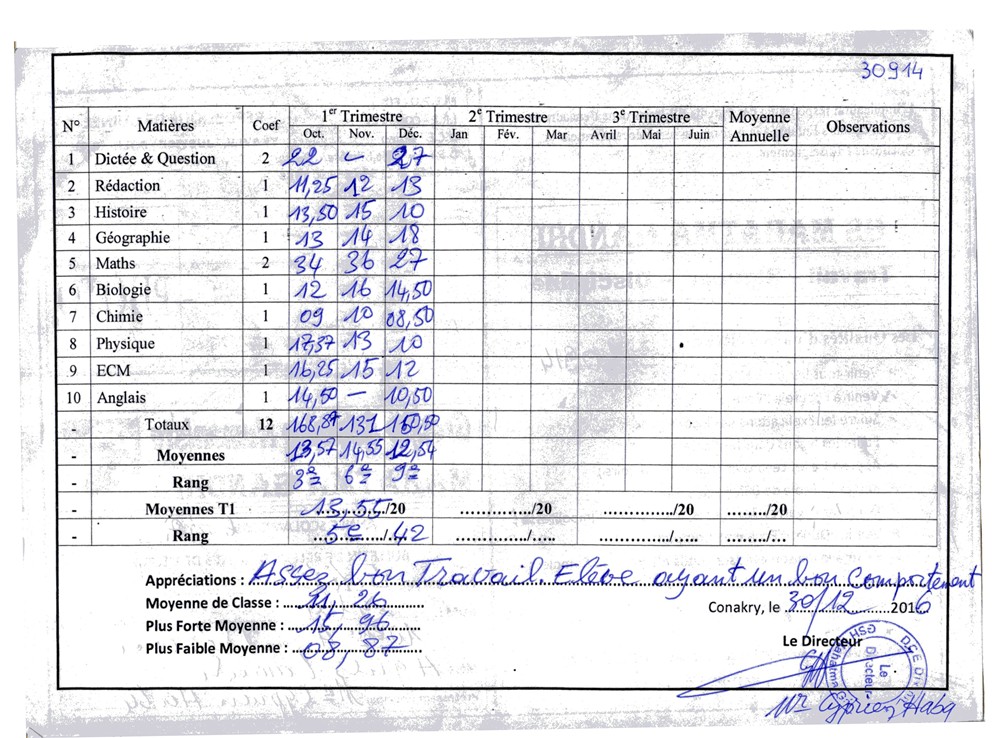 30914
N° Matières Coef 1er Trimestre 2e Trimestre 3e Trimestre Moyenne Annuelle Observations
Oct. Nov. Déc. Jan Fév. Mar Avril Mai Juin
1 Dictée & Question 2 22 – 27
2 Rédaction 1 11,25 12 13
3 Histoire 1 13,50 15 10
4 Géographie 1 13 14 18
5 Maths 2 34 36 27
6 Biologie 1 12 16 14,50
7 Chimie 1 09 10 08,50
8 Physique 1 17,37 13 10
9 ECM 1 16,25 15 12
10 Anglais 1 14,50 – 10,50
- Totaux 12 168,87 131 150,50
- Moyennes 13,57 14,55 12,54
- Rang 3e 6e 9e
- Moyennes T1 13,55/20 ............./20 ............./20 ......../20
- Rang 5e/42 ............./..... ............./..... ......../...
Appréciations : Assez bon Travail. Elève ayant un bon comportement
Moyenne de Classe : 11,26
Conakry, le 30/12 2016
Plus Forte Moyenne : 15,96
Plus Faible Moyenne : 08,87
Le Directeur
Le Directeur
Mr Cyprien Haba